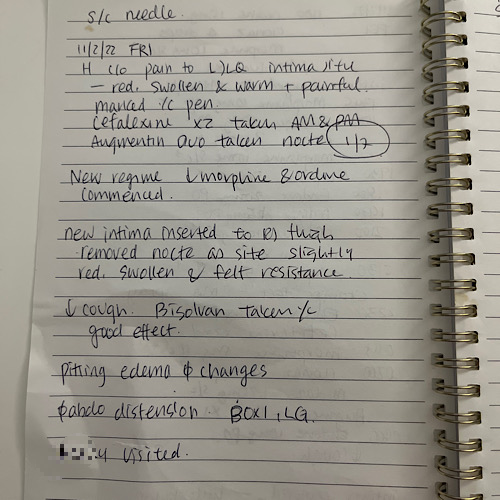 s/c needle.
11/2/22 FRI
H c/o pain to L) LQ intima site
- red, swollen & warm + painful.
marked c pen.
Cefalexine x2 taken AM & PM
Augmentin Duo taken nocte 1/7
New regime ↓morphine & ordine
commenced.
new intima inserted to R) thigh
removed nocte as site slightly
red, swollen & felt resistance.
↓ cough. Bisolvan taken c
good effect.
pitting edema φ changes
φ abdo distension. BOx1, LG.
visited.